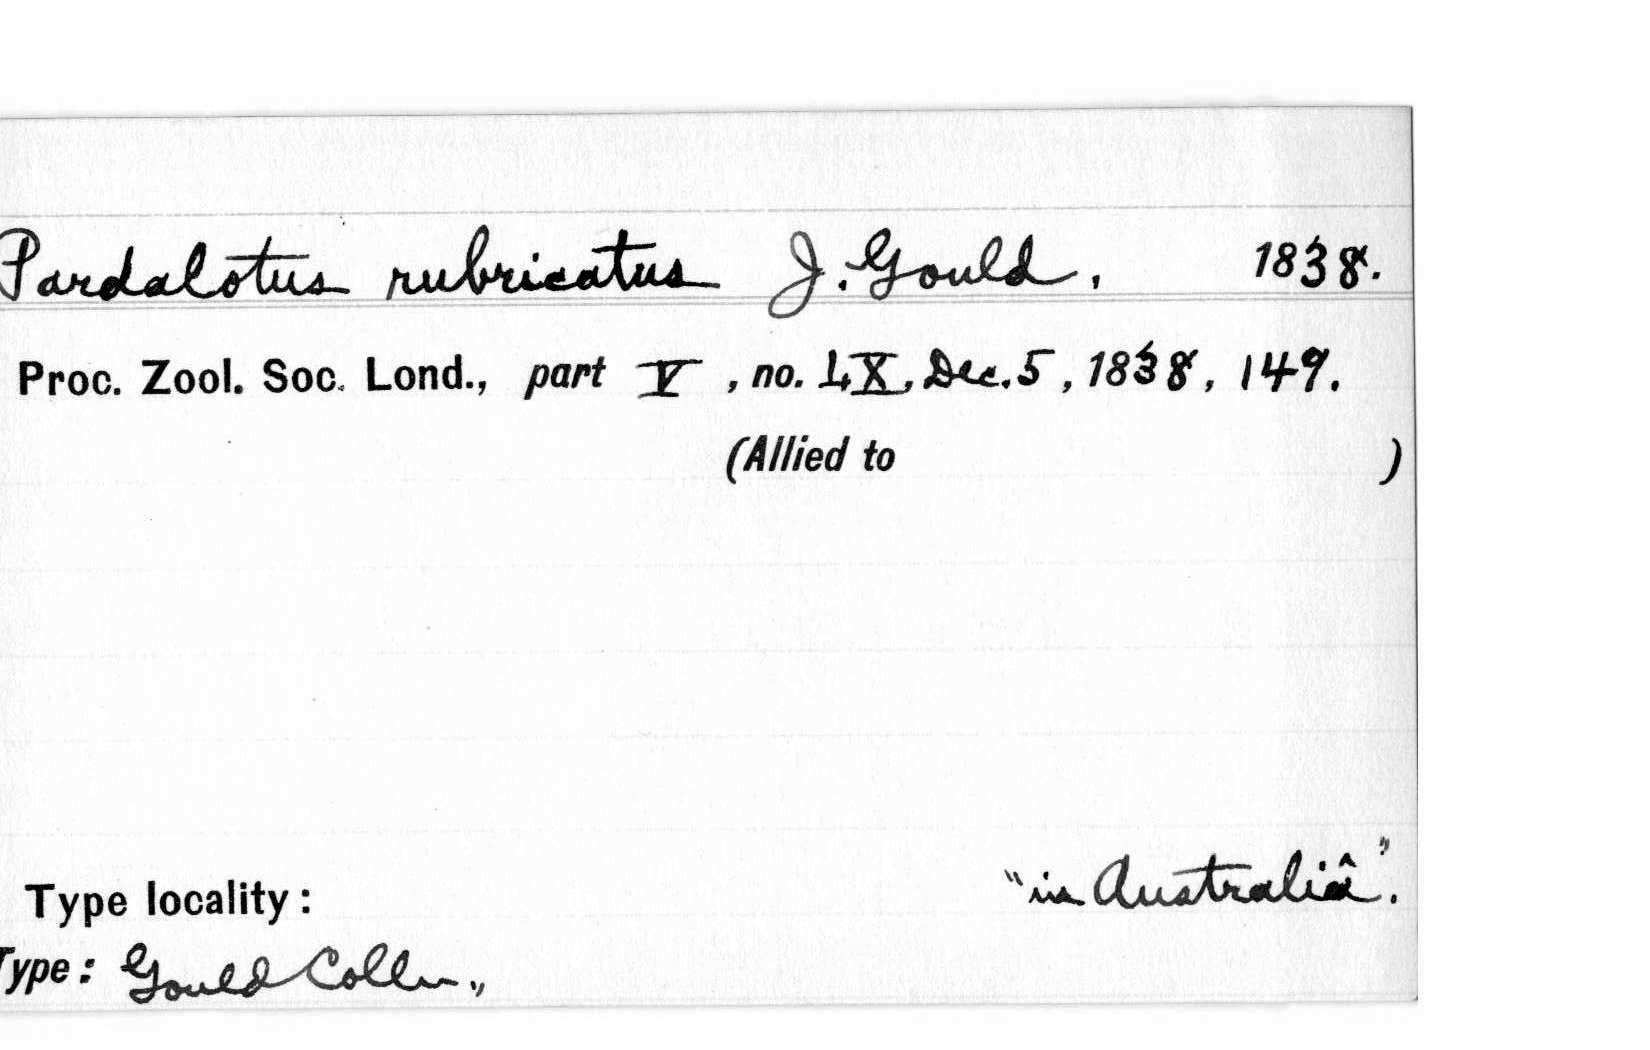 Pardalotus rubricatus J. Gould, 1838.
Proc. Zool. Soc. Lond., part V, no. LX, Dec. 5, 1838, 149.
(Allied to )
Type locality: "in Australiâ".
Type: Gould Colln.,